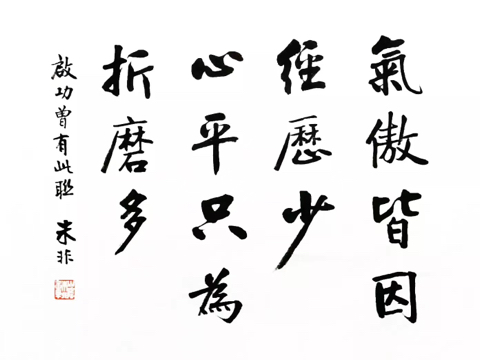 氣傲皆因
經歷少
心平只為
折磨多
啟功曾有此聯 未非